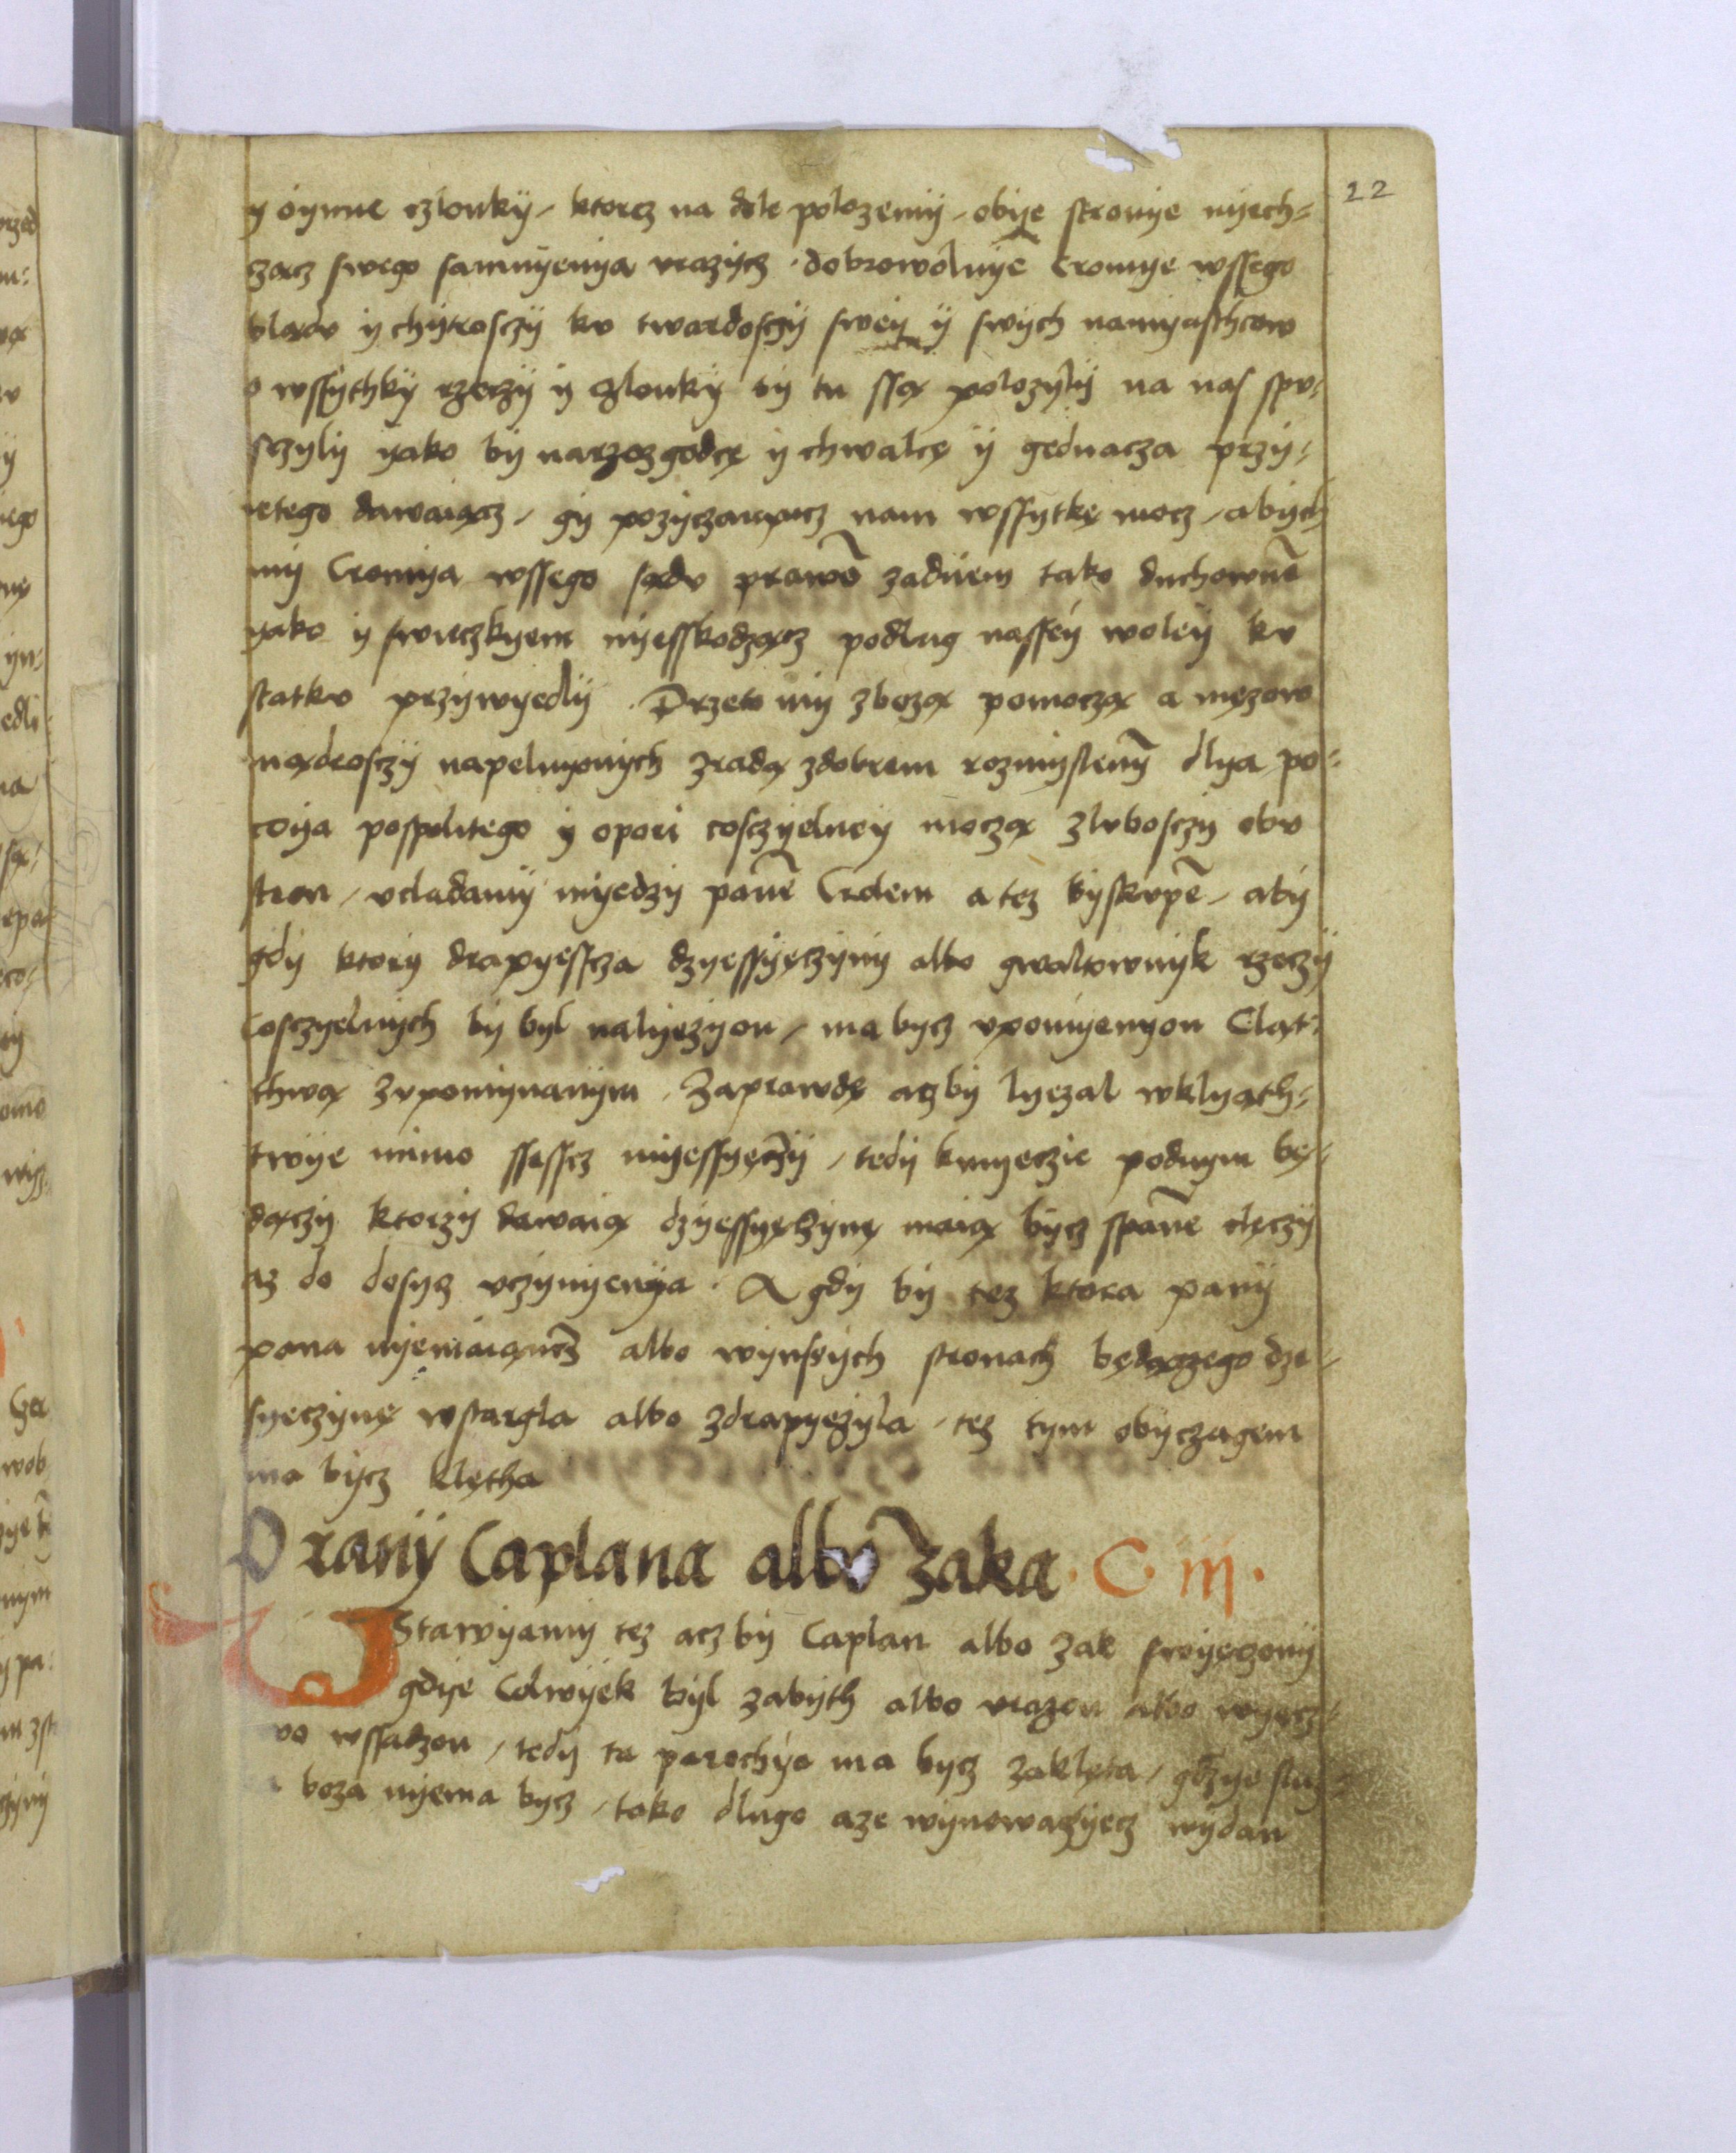 22
y oynne czlonky / ktorez na dole polozemy / obye stronye nyech=
czącz swego samnyenya vrazycz · dobrowolnye Cromye wssego
blądv y chytrosczy kv twardosczy swey y swych namyasthcow
o wssythky rzeczy y czlonky ty tu ssą polozyly na nas spv=
sczyly yako by narzozgodcę y chwalcę y gednacza przy=
ietego dawaiącz / gy pozyczaiącz nam wssytkę mocz / abych
my Cromya wssego sądv prawē zadnem tako duchownē
yako y swieczkyem nyesskodzącz podlug nassey woley kv
statkv przywyedly . Przeto my zbozą pomoczą a męzow
mądrosczy napelnyonych zradą zdobrem rozmyslenȳ dlya po=
coya pospolitego y opori cosczyelney moczą zlvbosczy obv
stron / vcladamy myedzy panē Crolem a tez byskvpē / aby
gdy ktory drapyescza dzyessyęczyny albo gwaltownyk rzeczy
Cosczyelnych by byl nalyezyon / ma bycz vpomyenyon Cląt=
thwą zvpomynanym . Zaprawdę aczby lyezal wklyąth=
twye mimo ssesscz myessyęczy / tedy kmyeczie podnym bę=
dączy ktorzy dawaią dzyessyęczynę maią bycz spanē clęczy
az do dosycz vczynyenya . A gdy by tez ktora pany
pana nyemaiącz albo wynsych stronach będączego dze=
syeczynę wstargla albo zdrapyezyla / tez tym obyczagem
ma bycz klętha
O rany Caplana albo Zaka · C · iij ·
Vstawyamy tez acz by Caplan albo zak swyęczony
gdye Colwyek byl zabyth albo vrazon albo wyęcz=
vo wssadzon / tedy ta parochya ma bycz zaklęta / gdzye sluz=
boza nyema bycz / tako dlugo aze wynowaczyecz wydan